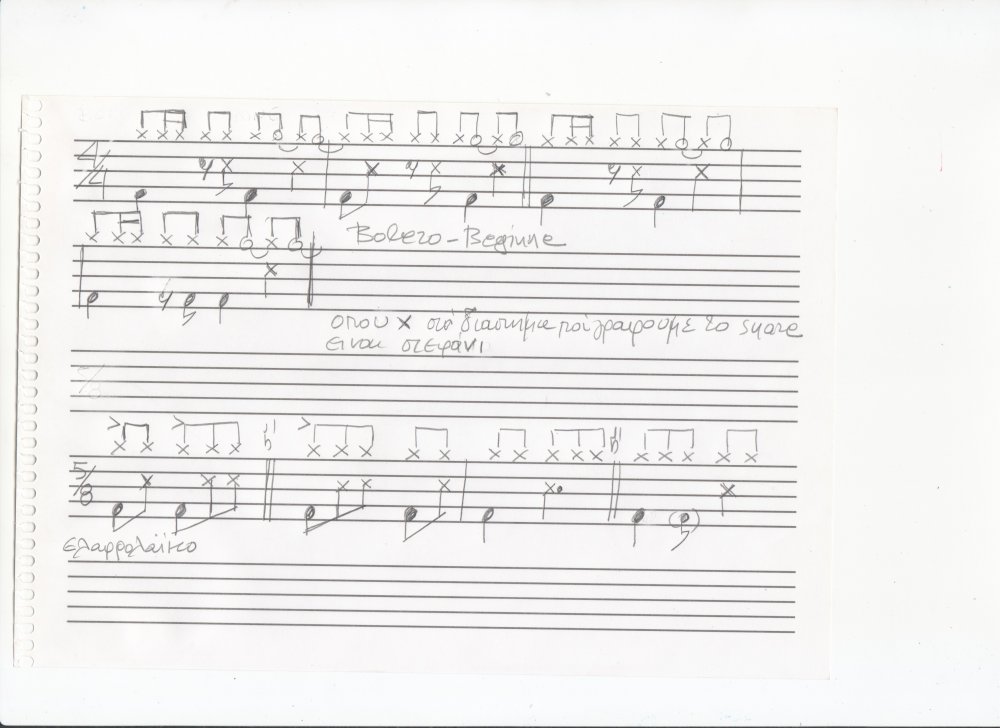 4/4
Bolero-Beginne
οπου x στο διαστημα που γραφουμε το snare
ειναι στεφανι
5/8
ελαφρολαϊκο